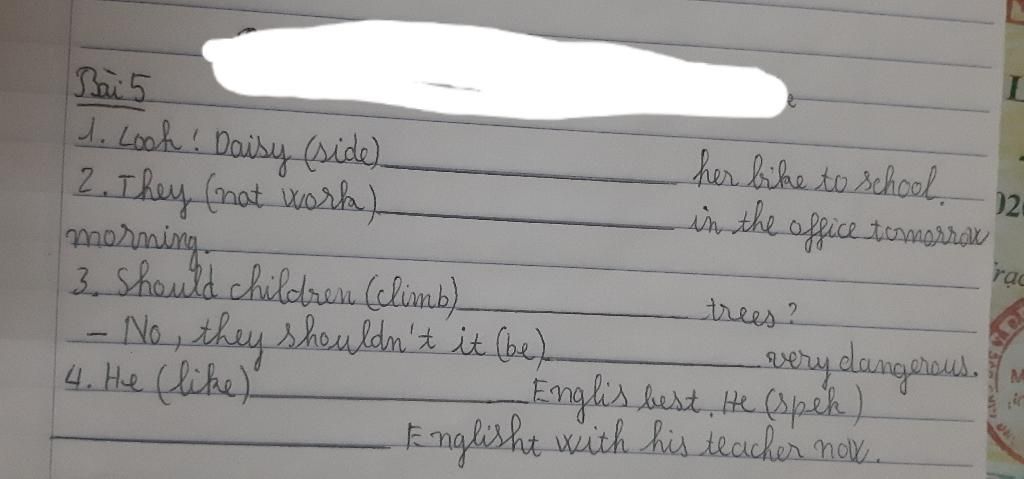 Bài 5
1. Look! Daisy (side) __________ her bike to school.
2. They (not work) __________ in the office tomorrow
morning.
3. Should children (climb) __________ trees?
– No, they shouldn't it (be) __________ very dangerous.
4. He (like) __________ Englis best. He (spek)
__________ Englisht with his teacher now.